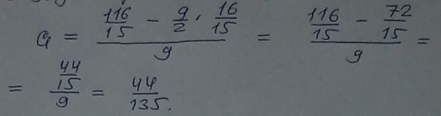 a = \frac{\frac{116}{15} - \frac{9}{2} \cdot \frac{16}{15}}{9} = \frac{\frac{116}{15} - \frac{72}{15}}{9} =
= \frac{\frac{44}{15}}{9} = \frac{44}{135}.